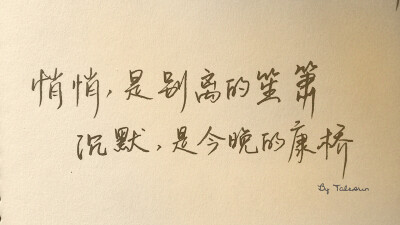 悄悄，是别离的笙箫
沉默，是今晚的康桥
By Taleoun